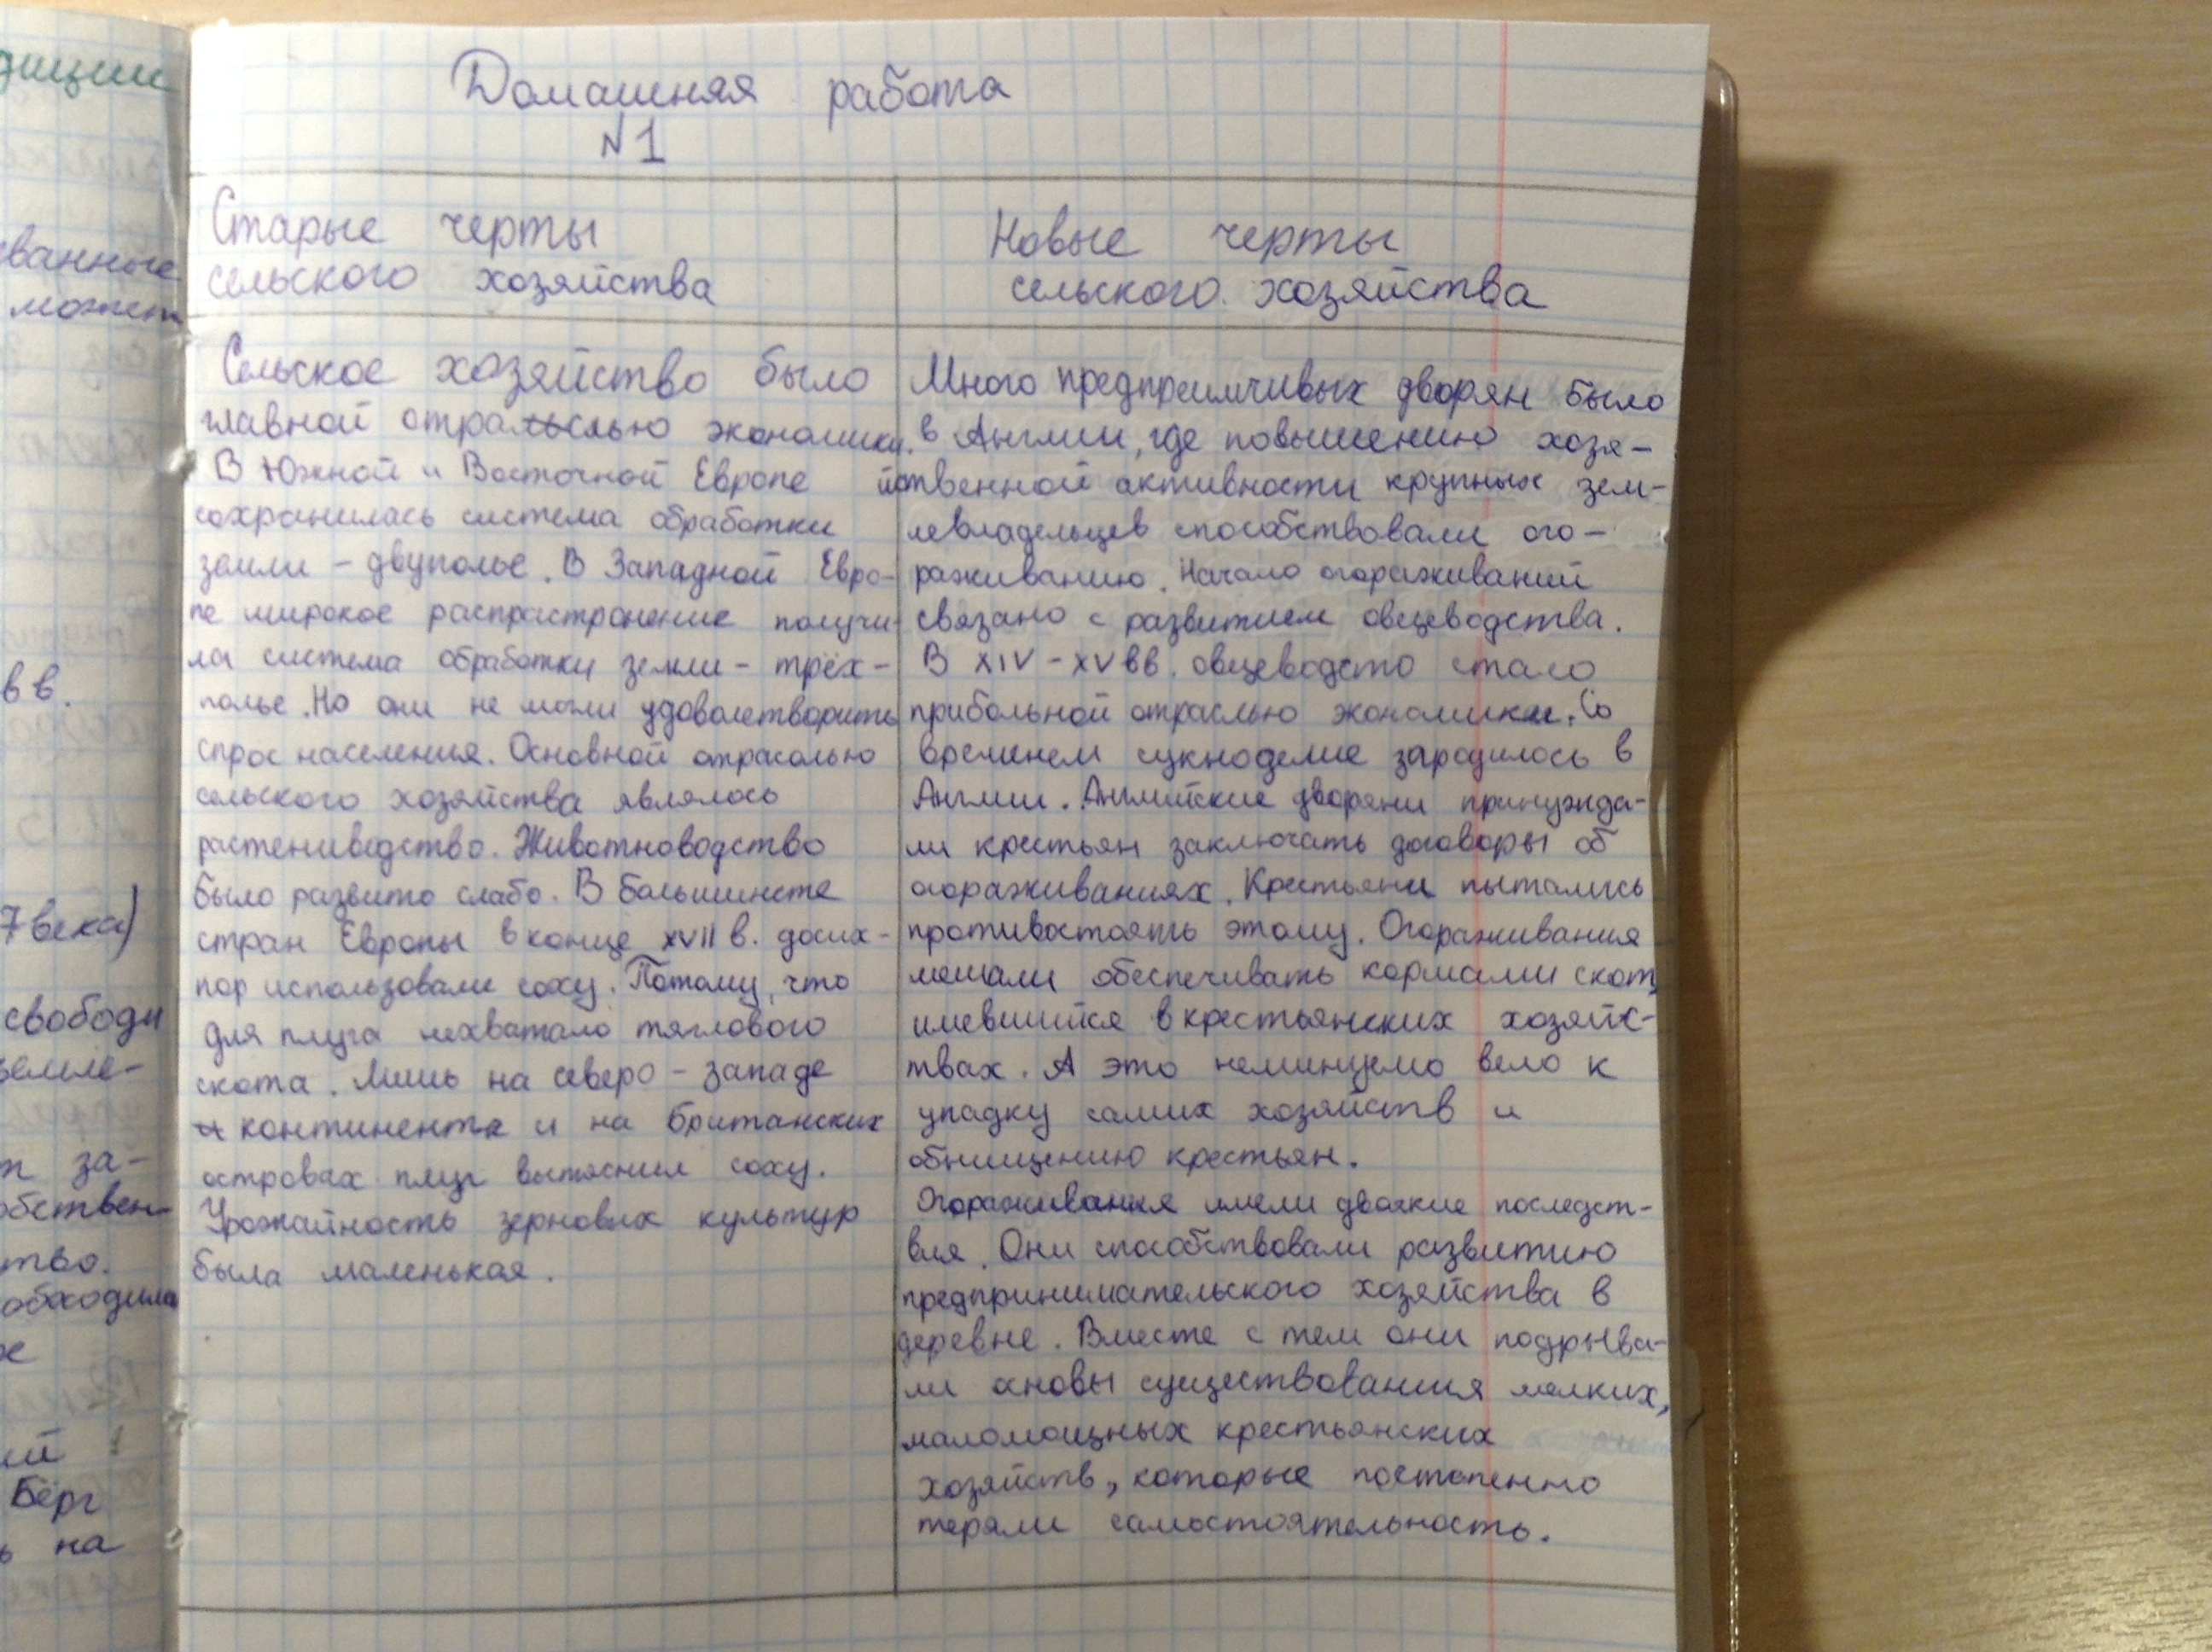 Домашняя работа
№1
Старые черты
сельского хозяйства
Сельское хозяйство было
главной отраслью экономики.
В Южной и Восточной Европе
сохранилась система обработки
земли - двуполье. В Западной Евро-
пе широкое распрастронение получи-
ла система обработки земли - трёх-
полье. Но они не могли удовлетворить
спрос населения. Основной отраслью
сельского хозяйства являлось
растениводство. Животноводство
было развито слабо. В большинсте
стран Европы в конце XVII в. досих-
пор использовали соху. Потому, что
для плуга нехватало тяглового
скота. Лишь на северо-западе
континента и на Британских
островах плуг вытеснил соху.
Урожайность зерновых культур
была маленькая.
Новые черты
сельского хозяйства
Много предприимчивых дворян было
в Англии, где повышению хозя-
йственной активности крупных зем-
левладельцев способствовали ого-
раживанию. Начало огораживаний
связано с развитием овцеводства.
В XIV - XV вв. овцеводсто стало
прибольной отраслью экономики. Со
временем сукноделие зародилось в
Англии. Английские дворяни принужда-
ли крестьян заключать договоры об
огораживаниях. Крестьяни пытались
противостоять этому. Огораживания
мешали обеспечивать кормами скот,
имевшийся в крестьянских хозяйс-
твах. А это неминуемо вело к
упадку самих хозяйств и
обнищению крестьян.
Огораживания имели двоякие последст-
вия. Они способствовали развитию
предпринимательского хозяйства в
деревне. Вместе с тем они подрыва-
ли сновы существования мелких,
маломощных крестьянских
хозяйств, которые постепенно
теряли самостоятельность.
ванные
может
вв.
7 века)
свободы
земле-
за-
обствен-
тво.
обходима
Бёрг
на